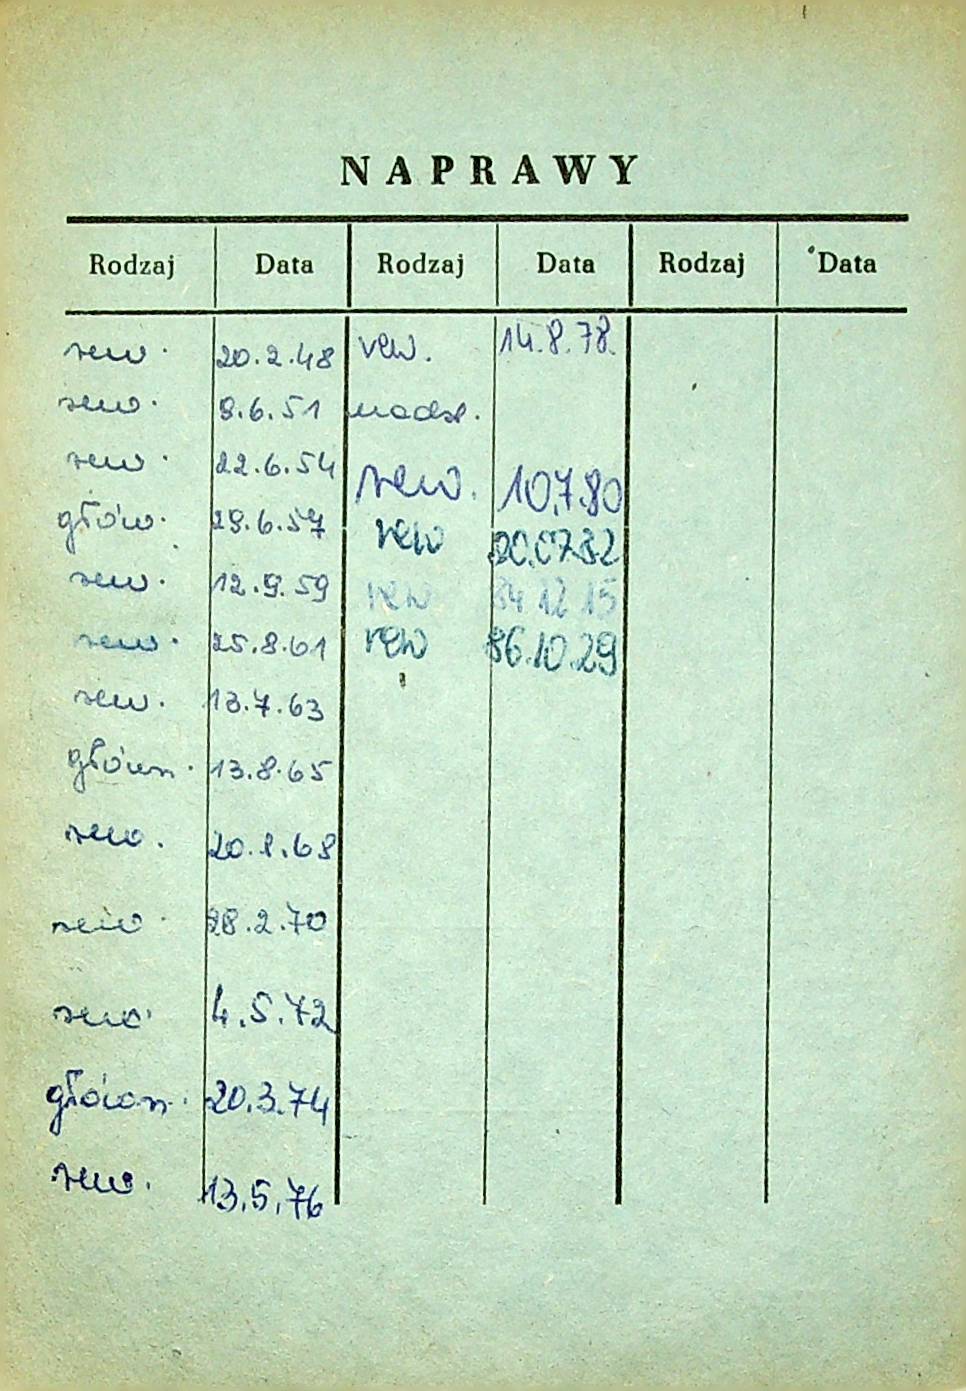 NAPRAWY
Rodzaj Data Rodzaj Data Rodzaj Data
rew. 20.2.48
rew. 9.6.51
rew. 22.6.54
głów. 29.6.57
rew. 12.9.59
rew. 25.8.61
rew. 13.7.63
główn. 13.8.65
rew. 20.1.68
rew. 28.2.70
rew. 4.5.72
główn. 20.3.74
rew. 13.5.76
rew. 14.8.78.
nadzw.
rew. 10.7.80
rew 20.07.82
rew 84 12 15
rew 86.10.29